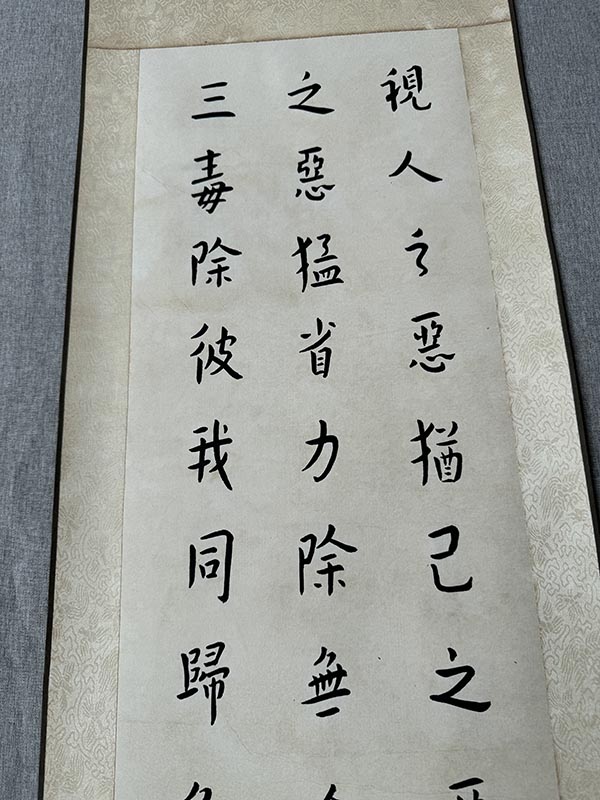 視人之惡猶己之
之惡猛省力除無
三毒除彼我同歸